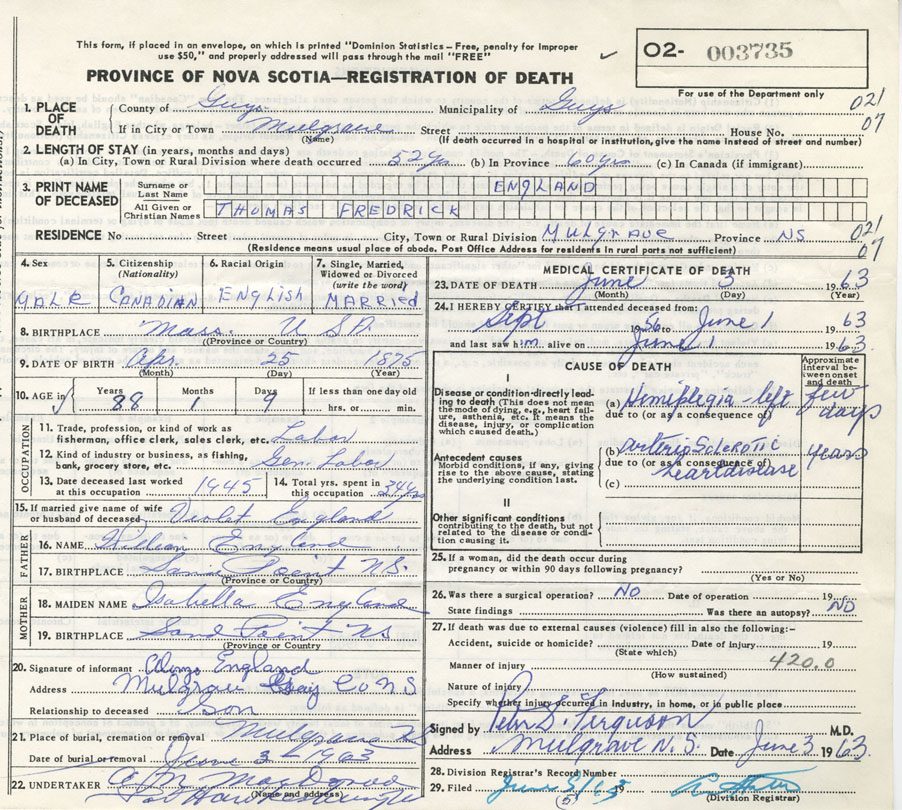 This form, if placed in an envelope, on which is printed "Dominion Statistics – Free, penalty for improper
use $50," and properly addressed will pass through the mail "FREE"
PROVINCE OF NOVA SCOTIA—REGISTRATION OF DEATH
O2- 003735
For use of the Department only
1. PLACE OF DEATH
County of Guys. Municipality of Guys 021
If in City or Town Mulgrave Street House No. 07
(Name) (If death occurred in a hospital or institution, give the name instead of street and number)
2. LENGTH OF STAY (in years, months and days)
(a) In City, Town or Rural Division where death occurred 52 yrs (b) In Province 60 yrs (c) In Canada (if immigrant)
3. PRINT NAME OF DECEASED
Surname or Last Name ENGLAND
All Given or Christian Names THOMAS FREDRICK
RESIDENCE No Street City, Town or Rural Division MULGRAVE Province NS 021
(Residence means usual place of abode. Post Office Address for residents in rural parts not sufficient) 07
4. Sex MALE
5. Citizenship (Nationality) CANADIAN
6. Racial Origin ENGLISH
7. Single, Married, Widowed or Divorced (write the word) MARRIED
8. BIRTHPLACE Mass. USA
(Province or Country)
9. DATE OF BIRTH Apr. 25 1875
(Month) (Day) (Year)
10. AGE in Years 88 Months 1 Days 9 If less than one day old hrs. or min.
OCCUPATION
11. Trade, profession, or kind of work as
fisherman, office clerk, sales clerk, etc. Labor
12. Kind of industry or business, as fishing,
bank, grocery store, etc. Gen. Labor
13. Date deceased last worked at this occupation 1945
14. Total yrs. spent in this occupation 34 yrs
15. If married give name of wife
or husband of deceased Violet England
FATHER
16. NAME William England
17. BIRTHPLACE Sand Point NS.
(Province or Country)
MOTHER
18. MAIDEN NAME Isabella England
19. BIRTHPLACE Sand Point NS
(Province or Country)
20. Signature of informant England
Address Mulgrave Guy Co NS
Relationship to deceased Son
21. Place of burial, cremation or removal Mulgrave
Date of burial or removal June 1963
22. UNDERTAKER
(Name and address)
MEDICAL CERTIFICATE OF DEATH
23. DATE OF DEATH June 3 1963
(Month) (Day) (Year)
24. I HEREBY CERTIFY that I attended deceased from:
Sept 1956 to June 1 1963
and last saw him alive on June 1 1963.
CAUSE OF DEATH
Approximate interval between onset and death
I
Disease or condition directly leading
to death (This does not mean
the mode of dying, e.g., heart failure,
asthenia, etc. It means the
disease, injury, or complication
which caused death.)
(a) Hemiplegia - left few days
due to (or as a consequence of)
Antecedent causes
Morbid conditions, if any, giving
rise to the above cause, stating
the underlying condition last.
(b) arteriosclerotic years
due to (or as a consequence of)
heart disease
(c)
II
Other significant conditions
contributing to the death, but not
related to the disease or condition
causing it.
25. If a woman, did the death occur during
pregnancy or within 90 days following pregnancy?
(Yes or No)
26. Was there a surgical operation? NO Date of operation 19
State findings Was there an autopsy? NO
27. If death was due to external causes (violence) fill in also the following:–
Accident, suicide or homicide? Date of injury 19
(State which)
Manner of injury 420.0
(How sustained)
Nature of injury
Specify whether injury occurred in industry, in home, or in public place
Signed by Ferguson M.D.
Address Mulgrave N.S. Date June 3 1963.
28. Division Registrar's Record Number
29. Filed June 19
(Division Registrar)